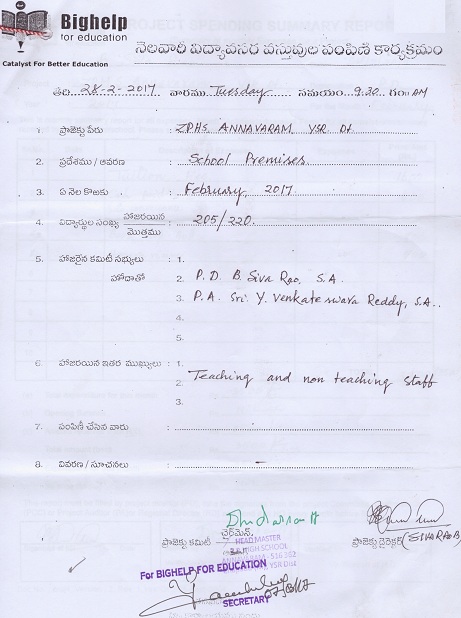 Bighelp
for education
Catalyst For Better Education
నెలవారి విద్యావసర వస్తువుల పంపిణి కార్యక్రమం
తేది...28-2-2017...వారము...Tuesday...సమయం...9.30...గం॥AM
1. ప్రాజెక్టు పేరు : ZPHS. ANNAVARAM YSR Dt.
2. ప్రదేశము / ఆవరణ : School Premises.
3. ఏ నెల కొఱకు : February, 2017.
4. విద్యార్థుల సంఖ్య హాజరయిన / మొత్తము : 205/220.
5. హాజరైన కమిటీ సభ్యులు : 1.
హోదాతో 2. P.D. B. Siva Rao, S.A.
3. P.A. Sri. Y. Venkateswara Reddy, S.A..
4.
5.
6. హాజరయిన ఇతర ముఖ్యులు : 1.
2. Teaching and non teaching staff
3.
7. పంపిణీ చేసిన వారు :
8. వివరణ / సూచనలు :
ప్రాజెక్టు కమిటీ ఛైర్మెన్,
ప్రాజెక్టు డైరెక్టర్ (SIVA RAO B)
HEAD MASTER
HIGH SCHOOL
ANNAVARAM - 516 362
YSR Dist
For BIGHELP FOR EDUCATION
SECRETARY